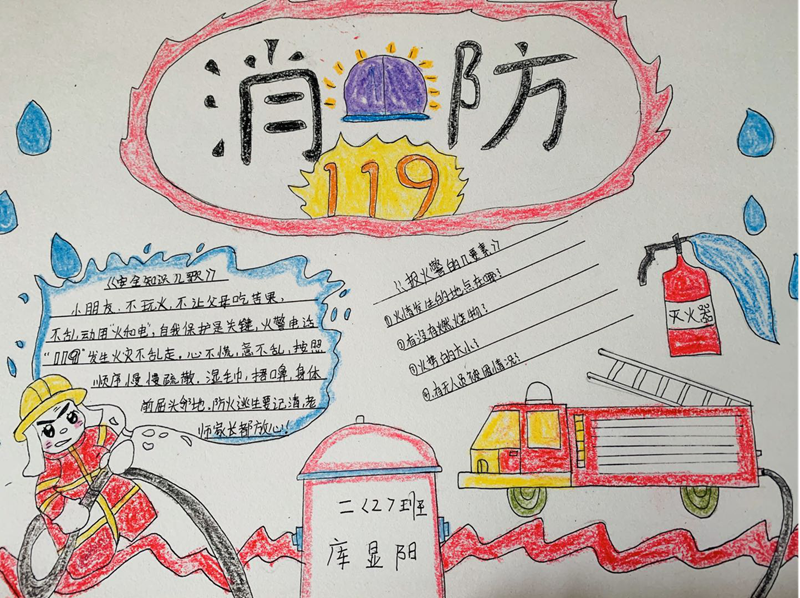 消防
119
《安全知识儿歌》
小朋友,不玩火,不让父母吃苦果,
不乱动用“火和电”,自我保护是关键,火警电话
“119”发生火灾不乱走。心不慌,意不乱,按照
顺序慢慢疏散,湿毛巾,捂口鼻,身体
前屈头邻地,防火逃生要记清,老
师家长都放心!
《报火警的几要素》
①火情发生的地点在哪?
②有没有燃烧物?
③火势的大小!
④有无人员被困情况?
灭火器
二〈2〉班
库显阳